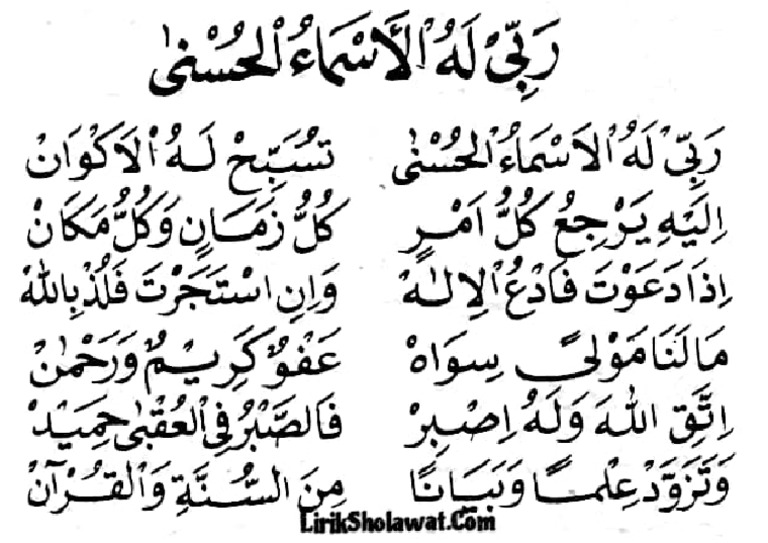 رَبِّيْ لَهُ الْاَسْمَاءُ الْحُسْنٰى
رَبِّيْ لَهُ الْاَسْمَاءُ الْحُسْنٰى تُسَبِّحْ لَـهُ الْاَكْوَانْ
اِلَيْهِ يَرْجِعُ كُلُّ اَمْـرٍ كُلُّ زَمَـانٍ وَكُلُّ مَكَانْ
اِذَا دَعَوْتَ فَادْعُ الْاِلـٰهْ وَاِنِ اسْتَجَرْتَ فَلُذْ بِاللهْ
مَا لَنَا مَوْلًى سِوَاهْ عَفُوٌّ كَرِيْمٌ وَرَحْمٰنْ
اِتَّقِ اللهَ وَلَهُ اِصْبِرْ فَالصَّبْرُ فِى الْعُقْبٰى حَمِيْدْ
وَتَزَوَّدْ عِلْمـًا وَبَيَانًا مِنَ السُّنَّةِ وَالْقُرْآنْ
LirikSholawat.Com